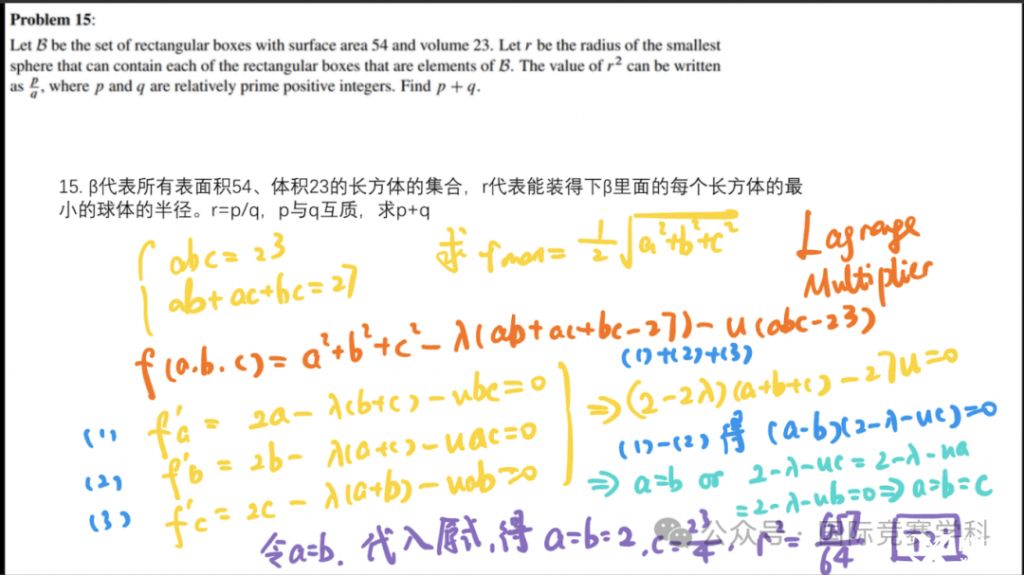 Problem 15:
Let B be the set of rectangular boxes with surface area 54 and volume 23. Let r be the radius of the smallest
sphere that can contain each of the rectangular boxes that are elements of B. The value of r² can be written
as p/q, where p and q are relatively prime positive integers. Find p + q.
15. β代表所有表面积54、体积23的长方体的集合，r代表能装得下β里面的每个长方体的最
小的球体的半径。r=p/q，p与q互质，求p+q
abc = 23
ab+ac+bc=27
求 rmax = 1/2 √(a²+b²+c²)
Lagrange
Multiplier
f(a.b.c) = a²+b²+c² - λ(ab+ac+bc-27) - u(abc-23)
(1) f'a = 2a - λ(b+c) - ubc=0
(2) f'b = 2b - λ(a+c) - uac=0
(3) f'c = 2c - λ(a+b) - uab=0
(1)+(2)+(3)
⇒ (2-2λ)(a+b+c) - 27u=0
(1)-(2) 得 (a-b)(2-λ-uc)=0
⇒ a=b or 2-λ-uc = 2-λ-ua
= 2-λ-ub=0 ⇒ a=b=c
令a=b. 代入原式, 得 a=b=2, c=23/4, r² = 657/64
公众号 · 国际竞赛学科